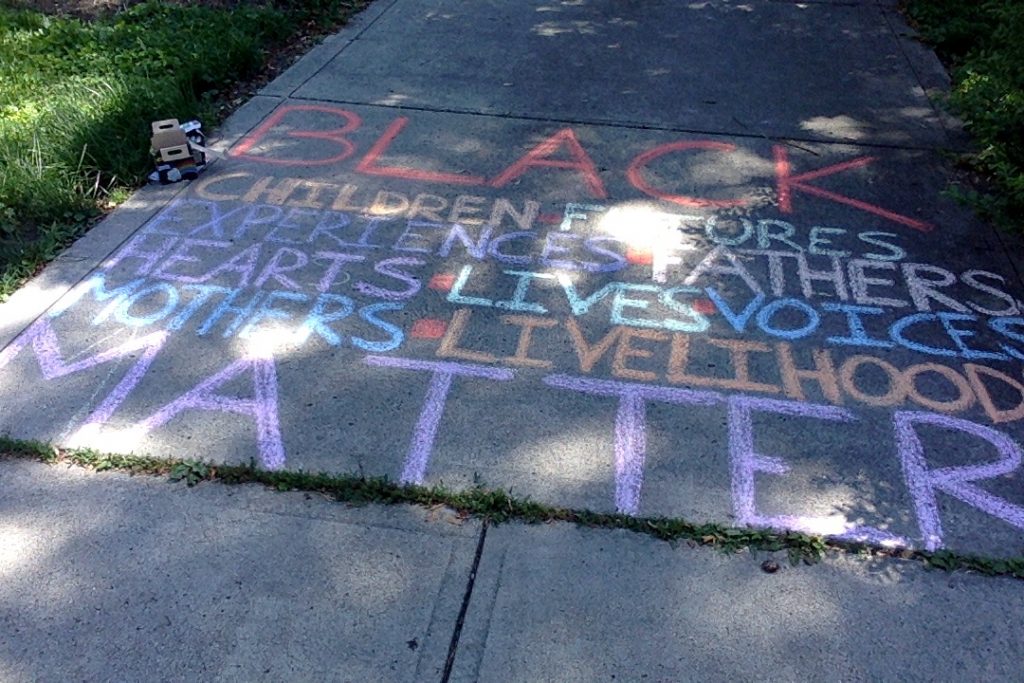 BLACK
CHILDREN • FUTURES
EXPERIENCES • FATHERS
HEARTS • LIVES • VOICES
MOTHERS • LIVELIHOOD
MATTER